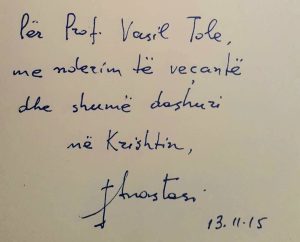 Për Prof. Vasil Tole,
me nderim të veçantë
dhe shumë dashuri
në Krishtin,
Anastasi
13.11.15